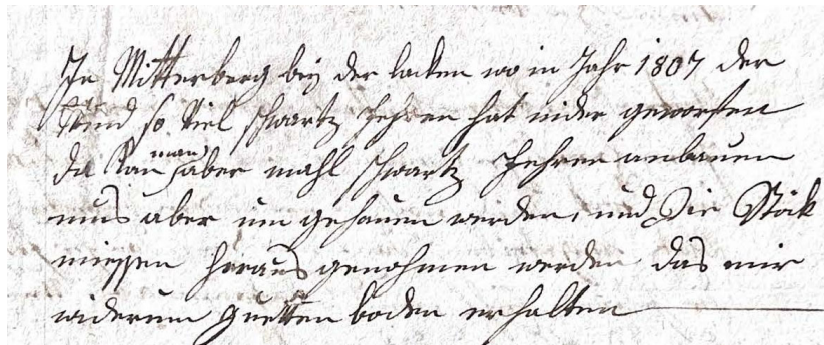 In Mitterberg bey der lacken wo in Jahr 1807 der
Wind so viel schwartz fehren hat nider geworfen
da kan man aber mahl schwartz fehren anbauen
mus aber um gehauen werden, und die Stöck
miessen heraus genohmen werden das mir
widerum guetten boden erhalten